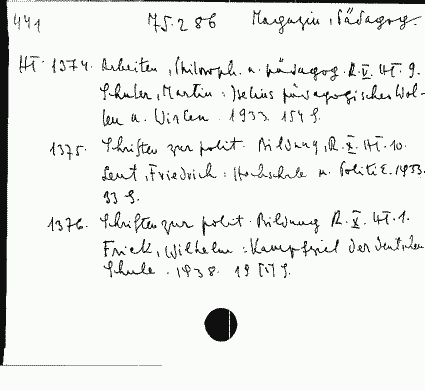 441 75.2 86 Magazin, Pädagog.
HT. 1374. Arbeiten, Philosoph. u. pädagog. R. V. HT. 9.
Schuler, Martin: Iselins pädagogisches Wol-
len u. Wirken. 1933. 154 S.
1375. Schriften zur polit. Bildung, R. X. HT. 10.
Lent, Friedrich: Hochschule u. Politik. 1933.
33 S.
1376. Schriften zur polit. Bildung R. X. HT. 1.
Frick, Wilhelm: Kampfziel der deutschen
Schule. 1938. 19 S.